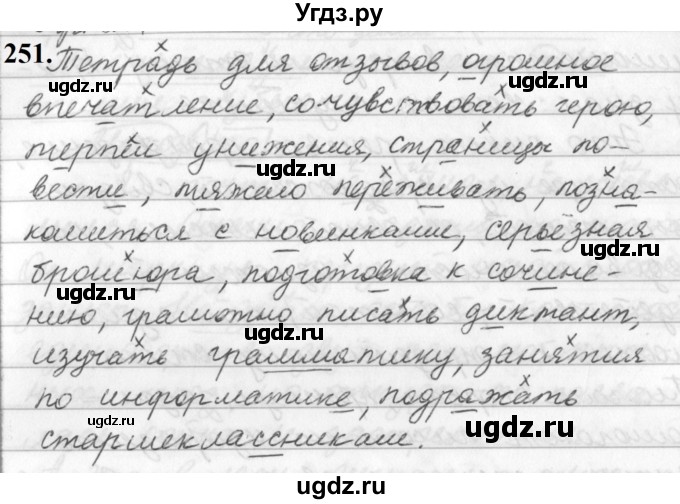 Угдз.ру
251. Тетрадь для отзывов, огромное
впечатление, сочувствовать герою,
терпел унижения, страницы по-
вести, тяжело переживать, позна-
комиться с новинками, серьёзная
брошюра, подготовка к сочине-
нию, грамотно писать диктант,
изучать грамматику, занятия
по информатике, подражать
старшеклассникам.
ugdz.ru
ugdz.ru
ugdz.ru
ugdz.ru
ugdz.ru
ugdz.ru
ugdz.ru
ugdz.ru
ugdz.ru
ugdz.ru
ugdz.ru
Угдз.ру